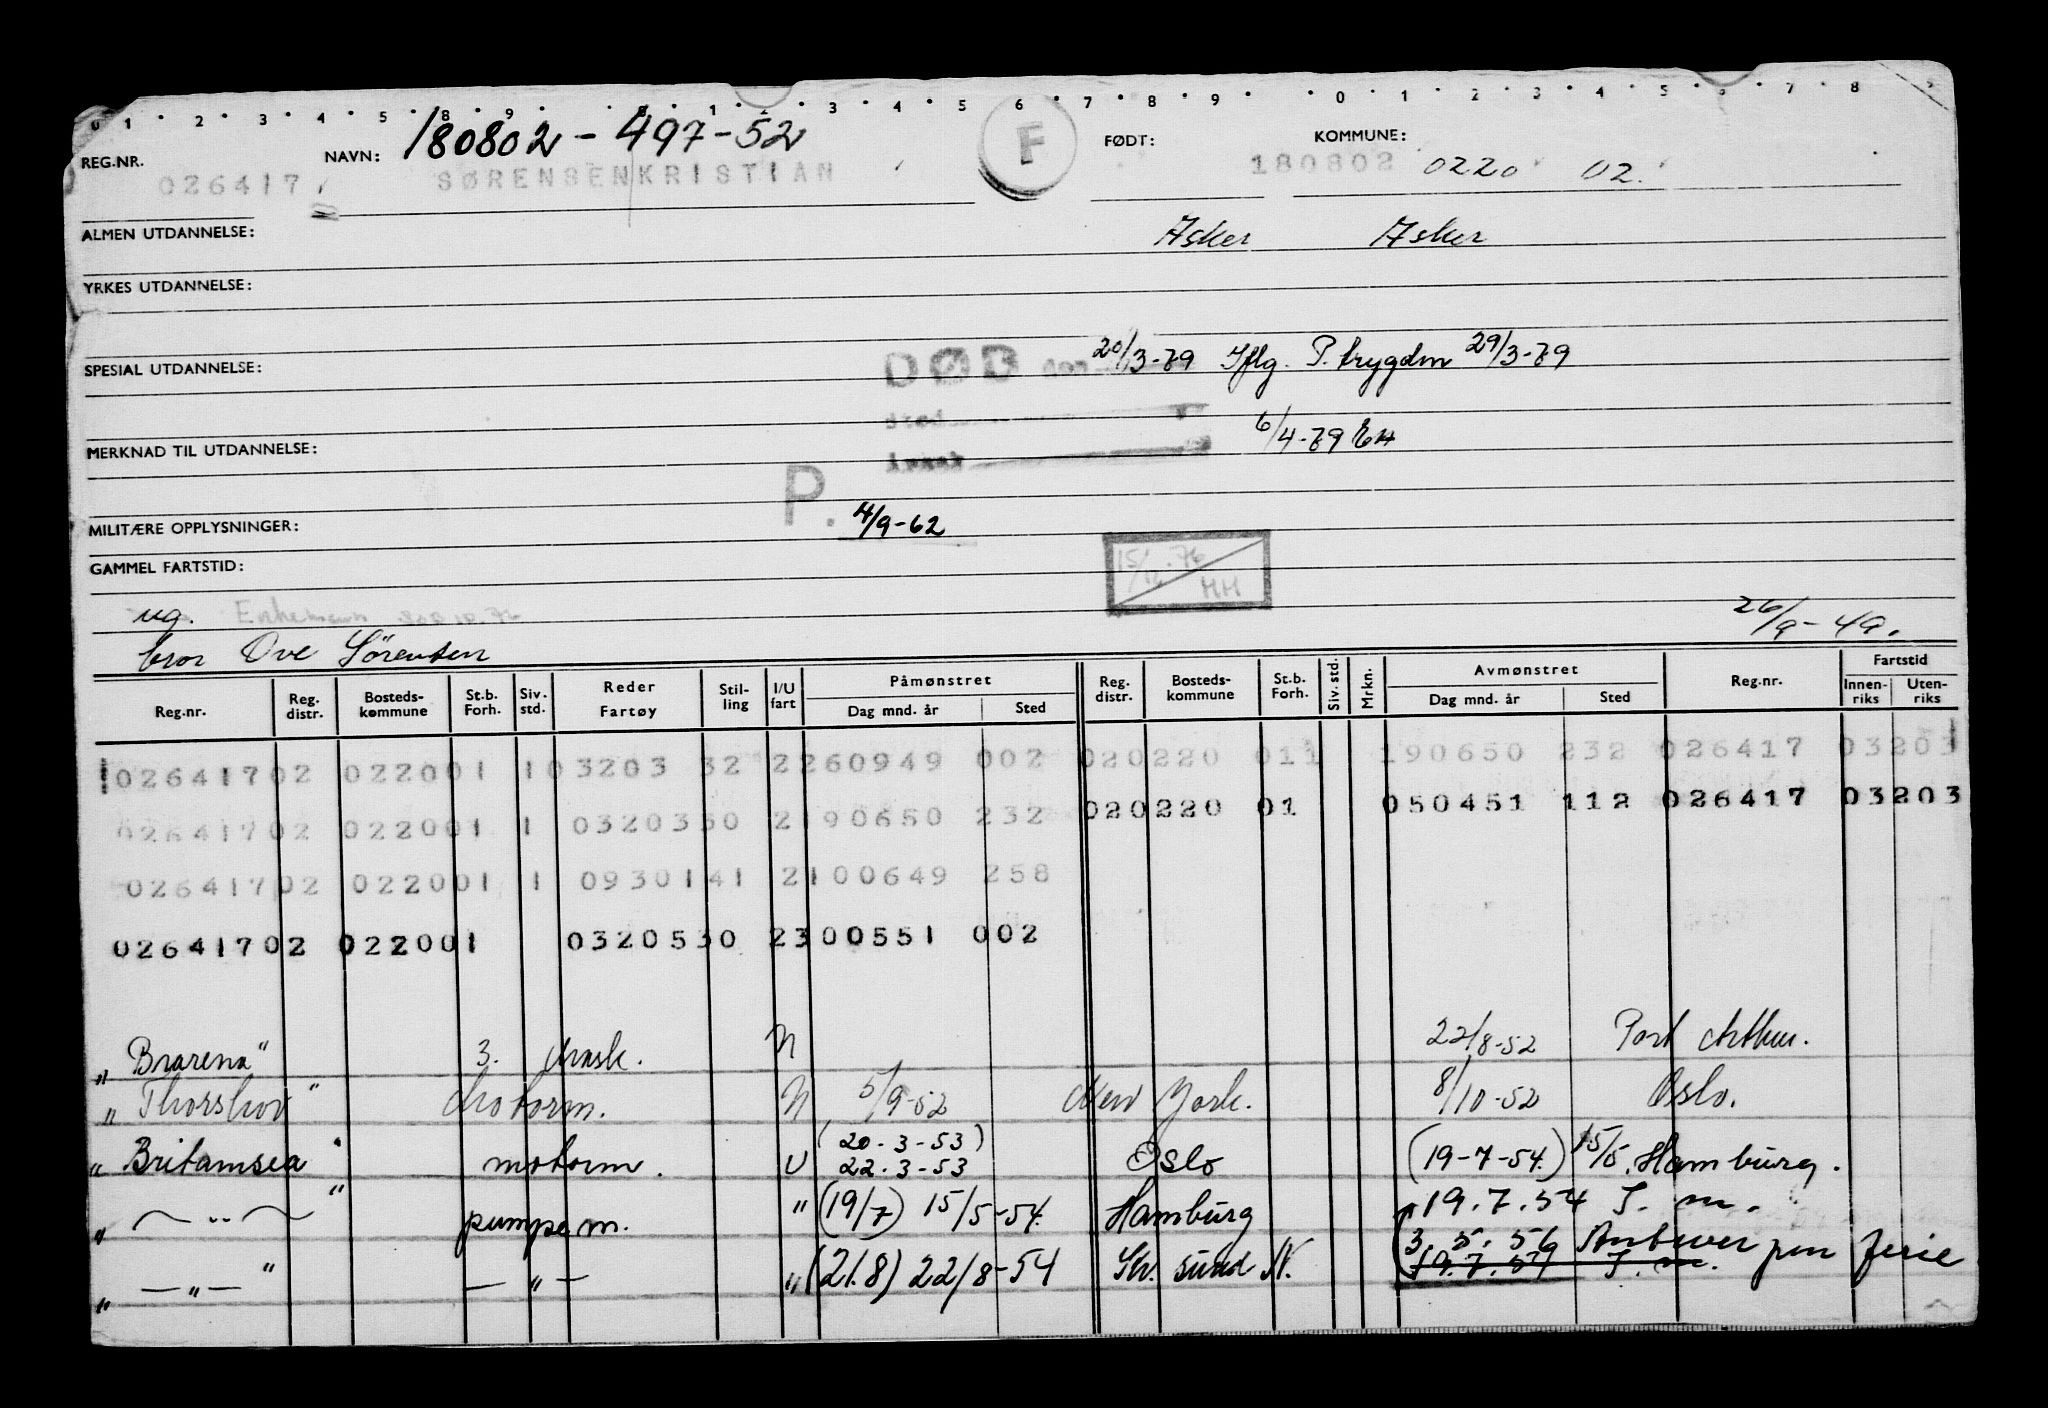 0 1 · 2 · 3 · 4 · 5 · 8 · 9 · · 0 · 1 · 2 · 3 · 4 · 5 6 · 7 · 8 · 9 · · 0 · 1 · 2 · 3 · 4 · 5 · 6 · 7 · 8
REG.NR. NAVN: 180802 - 497-52 F FØDT: KOMMUNE:
026417 SØRENSENKRISTIAN 180802 0220 02
ALMEN UTDANNELSE: Asker Asker
YRKES UTDANNELSE:
SPESIAL UTDANNELSE: DØD 20/3-79 Iflg. P. trygden 29/3-79
Sted
MERKNAD TIL UTDANNELSE: Årsak 6/4-79 EH
P.
MILITÆRE OPPLYSNINGER: 4/9-62
GAMMEL FARTSTID: 15/12.76 HH
ug. Enkemann 10.76 26/9-49.
bror Ove Sörensen
Reg.nr. Reg. distr. Bosteds-kommune St.b. Forh. Siv. std. Reder Fartøy Stil-ling I/U fart Påmønstret Dag mnd. år Sted Reg. distr. Bosteds-kommune St.b. Forh. Siv. std. Mrkn. Avmønstret Dag mnd. år Sted Reg.nr. Fartstid Innen-riks Uten-riks
02641702 022001 103203 32 2260949 002 020220 011 190650 232 026417 03203
02641702 022001 1 0320330 2190650 232 020220 01 050451 112 026417 03203
02641702 022001 1 0930141 2100649 258
02641702 022001 0320530 2300551 002
„ Brarena" 3. Mask. N 22/8-52 Port Arthur.
„ Thorshov" Motorm. N 5/9-52 New York. 8/10-52 Oslo.
„ Britamsea" motorm. U (20-3-53) 22.3-53 Oslo (19-7-54) 15/5. Hamburg.
„ — " — " pumpem. " (19/7) 15/5-54. Hamburg 19.7.54 S. m.
„ — " — " — " — " (21.8) 22/8-54 Kr. sund N. (3. 5. 56 Antwer pen ferie
19.7.54 S. m.